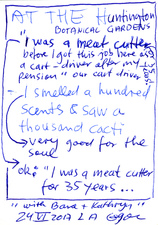 AT THE Huntington
BOTANICAL GARDENS
"I was a meat cutter
before I got this job here as
a cart-driver after my
pension" our cart driver
I smelled a hundred
scents & saw a
thousand cacti
very good for the
soul
ok: "I was a meat cutter
for 35 years...
"with Bara + Kathryn"
24 VI 2017 LA